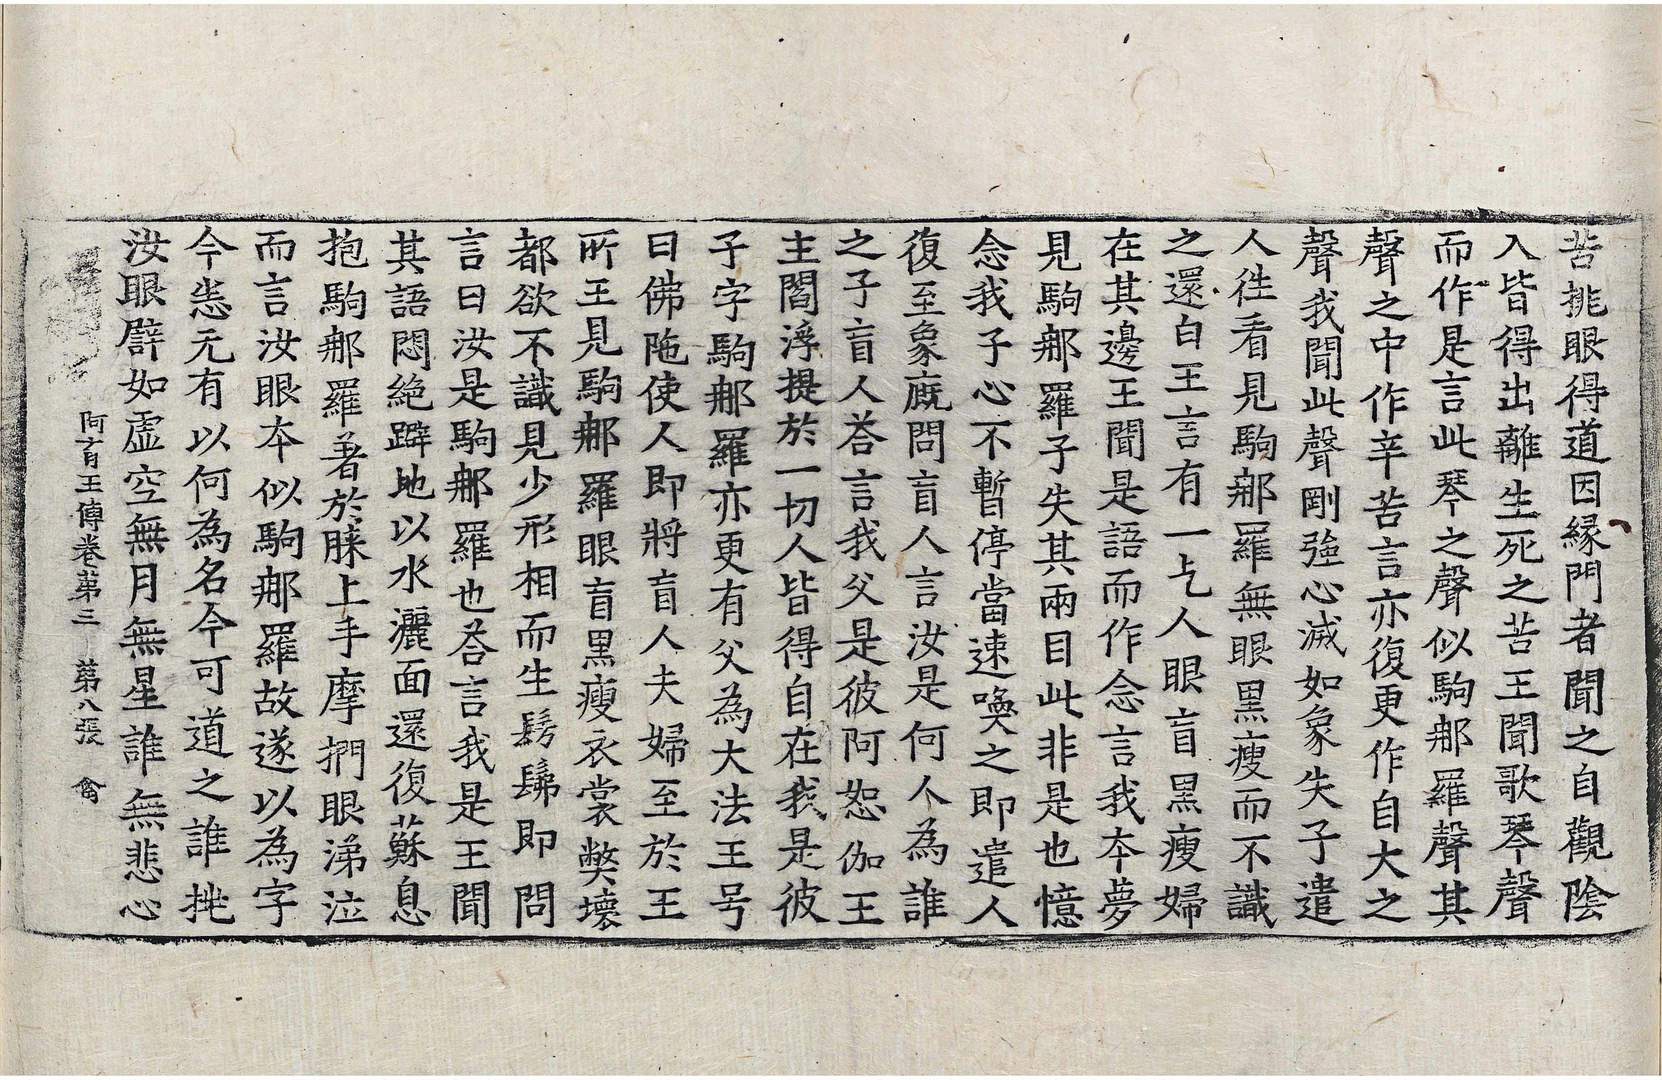 苦挑眼得道因緣門者聞之自觀陰
入皆得出離生死之苦王聞歌琴聲
而作是言此琴之聲似駒那羅聲其
聲之中作辛苦言亦復更作自大之
聲我聞此聲剛強心滅如象失子遣
人往看見駒那羅無眼黑瘦而不識
之還白王言有一乞人眼盲黑瘦婦
在其邊王聞是語而作念言我本夢
見駒那羅子失其兩目此非是也憶
念我子心不暫停當速喚之即遣人
復至象廐問盲人言汝是何人為誰
之子盲人荅言我父是彼阿恕伽王
主閻浮提於一切人皆得自在我是彼
子字駒那羅亦更有父為大法王号
曰佛陁使人即將盲人夫婦至於王
所王見駒那羅眼盲黑瘦衣裳獘壞
都欲不識見少形相而生髣髴即問
言曰汝是駒那羅也荅言我是王聞
其語悶絕躃地以水灑面還復蘇息
抱駒那羅著於䏶上手摩捫眼涕泣
而言汝眼本似駒那羅故遂以為字
今悉无有以何為名今可道之誰挑
汝眼譬如虛空無月無星誰無悲心
阿育王傳卷第三 第八張 禽